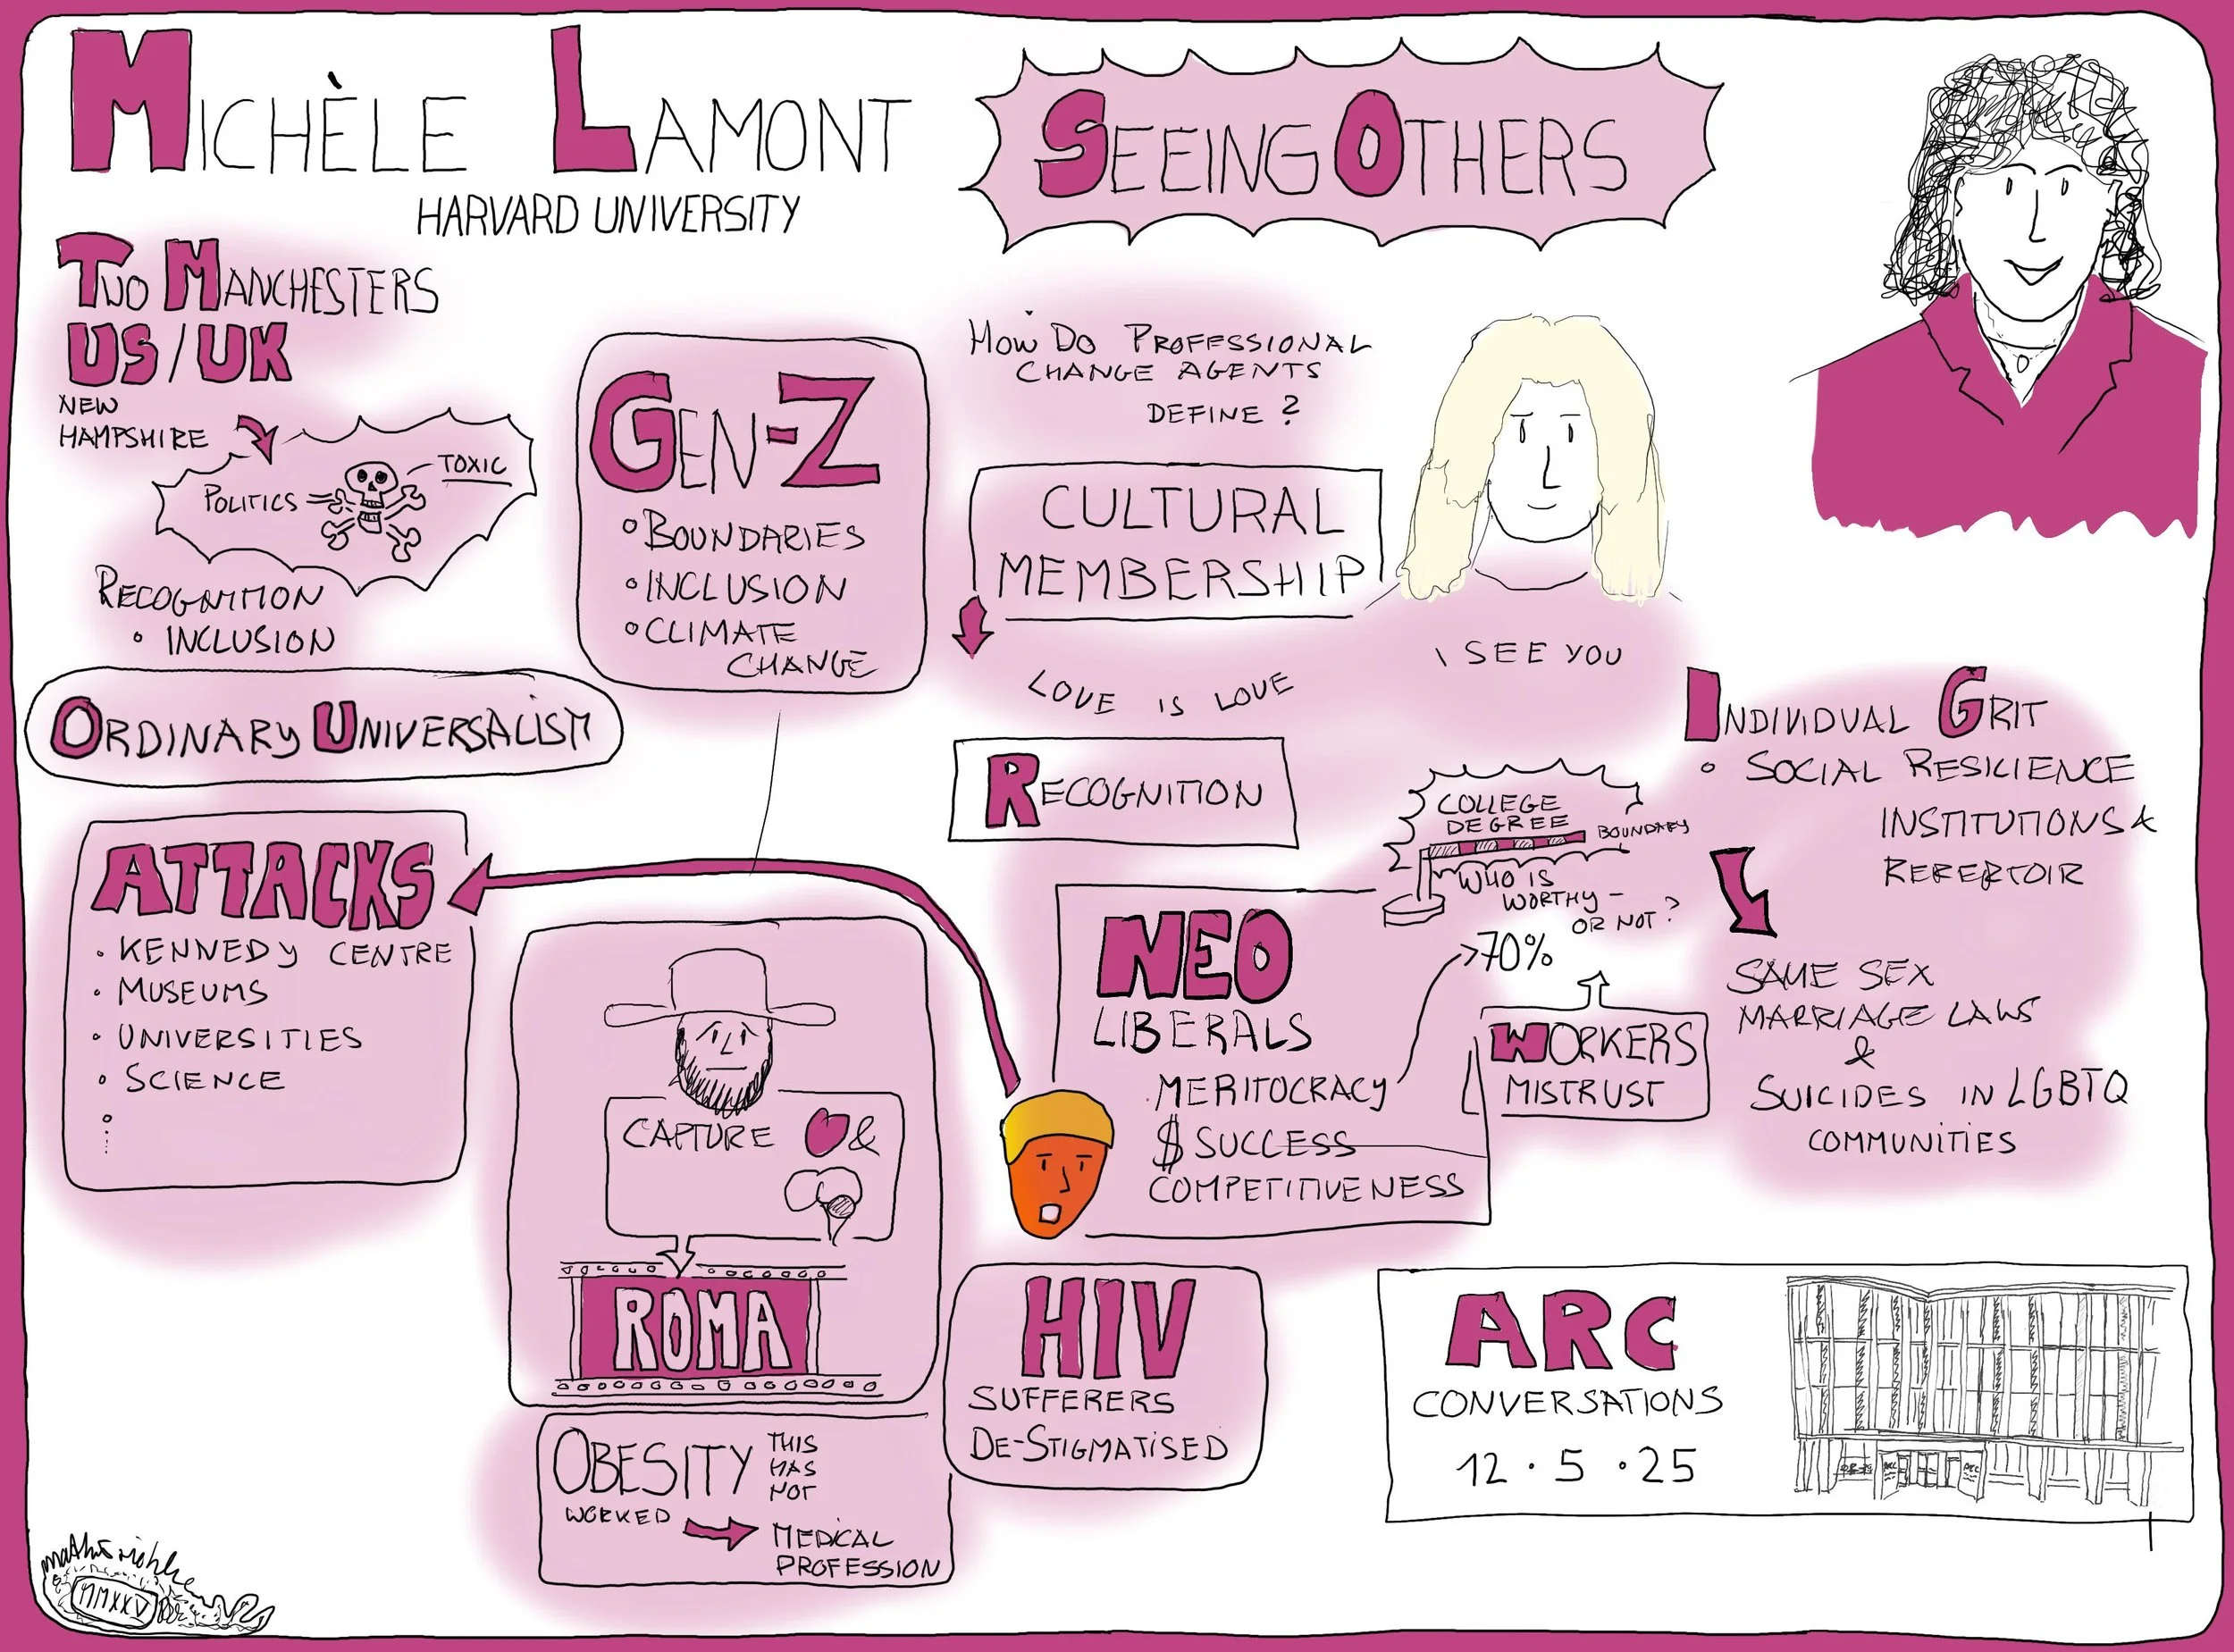 MICHÈLE LAMONT
HARVARD UNIVERSITY
SEEING OTHERS
TWO MANCHESTERS
US/UK
NEW
HAMPSHIRE
POLITICS =
TOXIC
RECOGNITION
• INCLUSION
ORDINARY UNIVERSALISM
GEN-Z
• BOUNDARIES
• INCLUSION
• CLIMATE
CHANGE
HOW DO PROFESSIONAL
CHANGE AGENTS
DEFINE ?
CULTURAL
MEMBERSHIP
LOVE IS LOVE
I SEE YOU
RECOGNITION
ATTACKS
• KENNEDY CENTRE
• MUSEUMS
• UNIVERSITIES
• SCIENCE
CAPTURE &
ROMA
OBESITY THIS
HAS
NOT
WORKED
MEDICAL
PROFESSION
NEO
LIBERALS
MERITOCRACY
$ SUCCESS
COMPETITIVENESS
COLLEGE
DEGREE
BOUNDARY
WHO IS
WORTHY –
OR NOT ?
>70%
WORKERS
MISTRUST
HIV
SUFFERERS
DE-STIGMATISED
INDIVIDUAL GRIT
• SOCIAL RESICIENCE
INSTITUTIONS &
REPERTOIR
SAME SEX
MARRIAGE LAWS
&
SUICIDES IN LGBTQ
COMMUNITIES
ARC
CONVERSATIONS
12 • 5 • 25
MMXXV